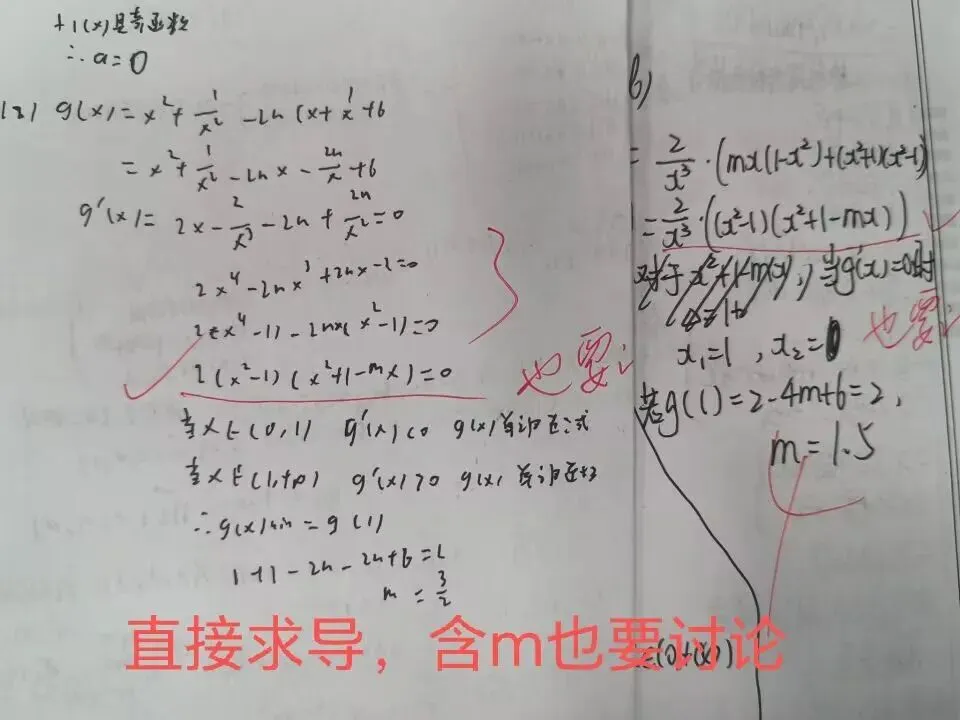 f(x)是奇函数
∴a=0
(2) g(x)=x²+1/x²-2m(x+1/x)+6
=x²+1/x²-2mx-2m/x+6
g'(x)=2x-2/x³-2m+2m/x²=0
2x⁴-2mx³+2mx-2=0
2(x⁴-1)-2mx(x²-1)=0
2(x²-1)(x²+1-mx)=0
也要讠
当x∈(0,1) g'(x)<0 g(x)单调递减
当x∈(1,+∞) g'(x)>0 g(x)单调递增
∴g(x)min=g(1)
1+1-2m-2m+6=2
m=3/2
=2/x³·(mx(1-x²)+(x²+1)(x²-1))
=2/x³·((x²-1)(x²+1-mx))
当g'(x)=0时
x₁=1, x₂=0
也要
若g(1)=2-4m+6=2,
m=1.5
直接求导，含m也要讨论